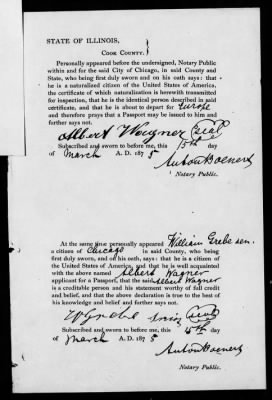 STATE OF ILLINOIS,
COOK COUNTY.
Personally appeared before the undersigned, Notary Public
within and for the said City of Chicago, in said County and
State, who being first duly sworn and on his oath says: that
he is a naturalized citizen of the United States of America,
the certificate of which naturalization is herewith transmitted
for inspection, that he is the identical person described in said
certificate, and that he is about to depart for Europe
and therefore prays that a Passport may be issued to him and
further says not.
Albert Wagner Seal
Subscribed and sworn to before me, this 15th day
of March A. D. 1875
Anton Boenert
Notary Public.
At the same time personally appeared William Grebe sen.
a citizen of Chicago in said county, who being
first duly sworn, and on his oath says: that he is a citizen of
the United States of America, and that he is well acquainted
with the above named Albert Wagner
applicant for a Passport, that the said Albert Wagner
is a creditable person and his statement worthy of full credit
and belief, and that the above declaration is true to the best of
his knowledge and belief and further says not.
W Grebe Senior Seal
Subscribed and sworn to before me, this 15th day
of March A. D. 1875
Anton Boenert
Notary Public.